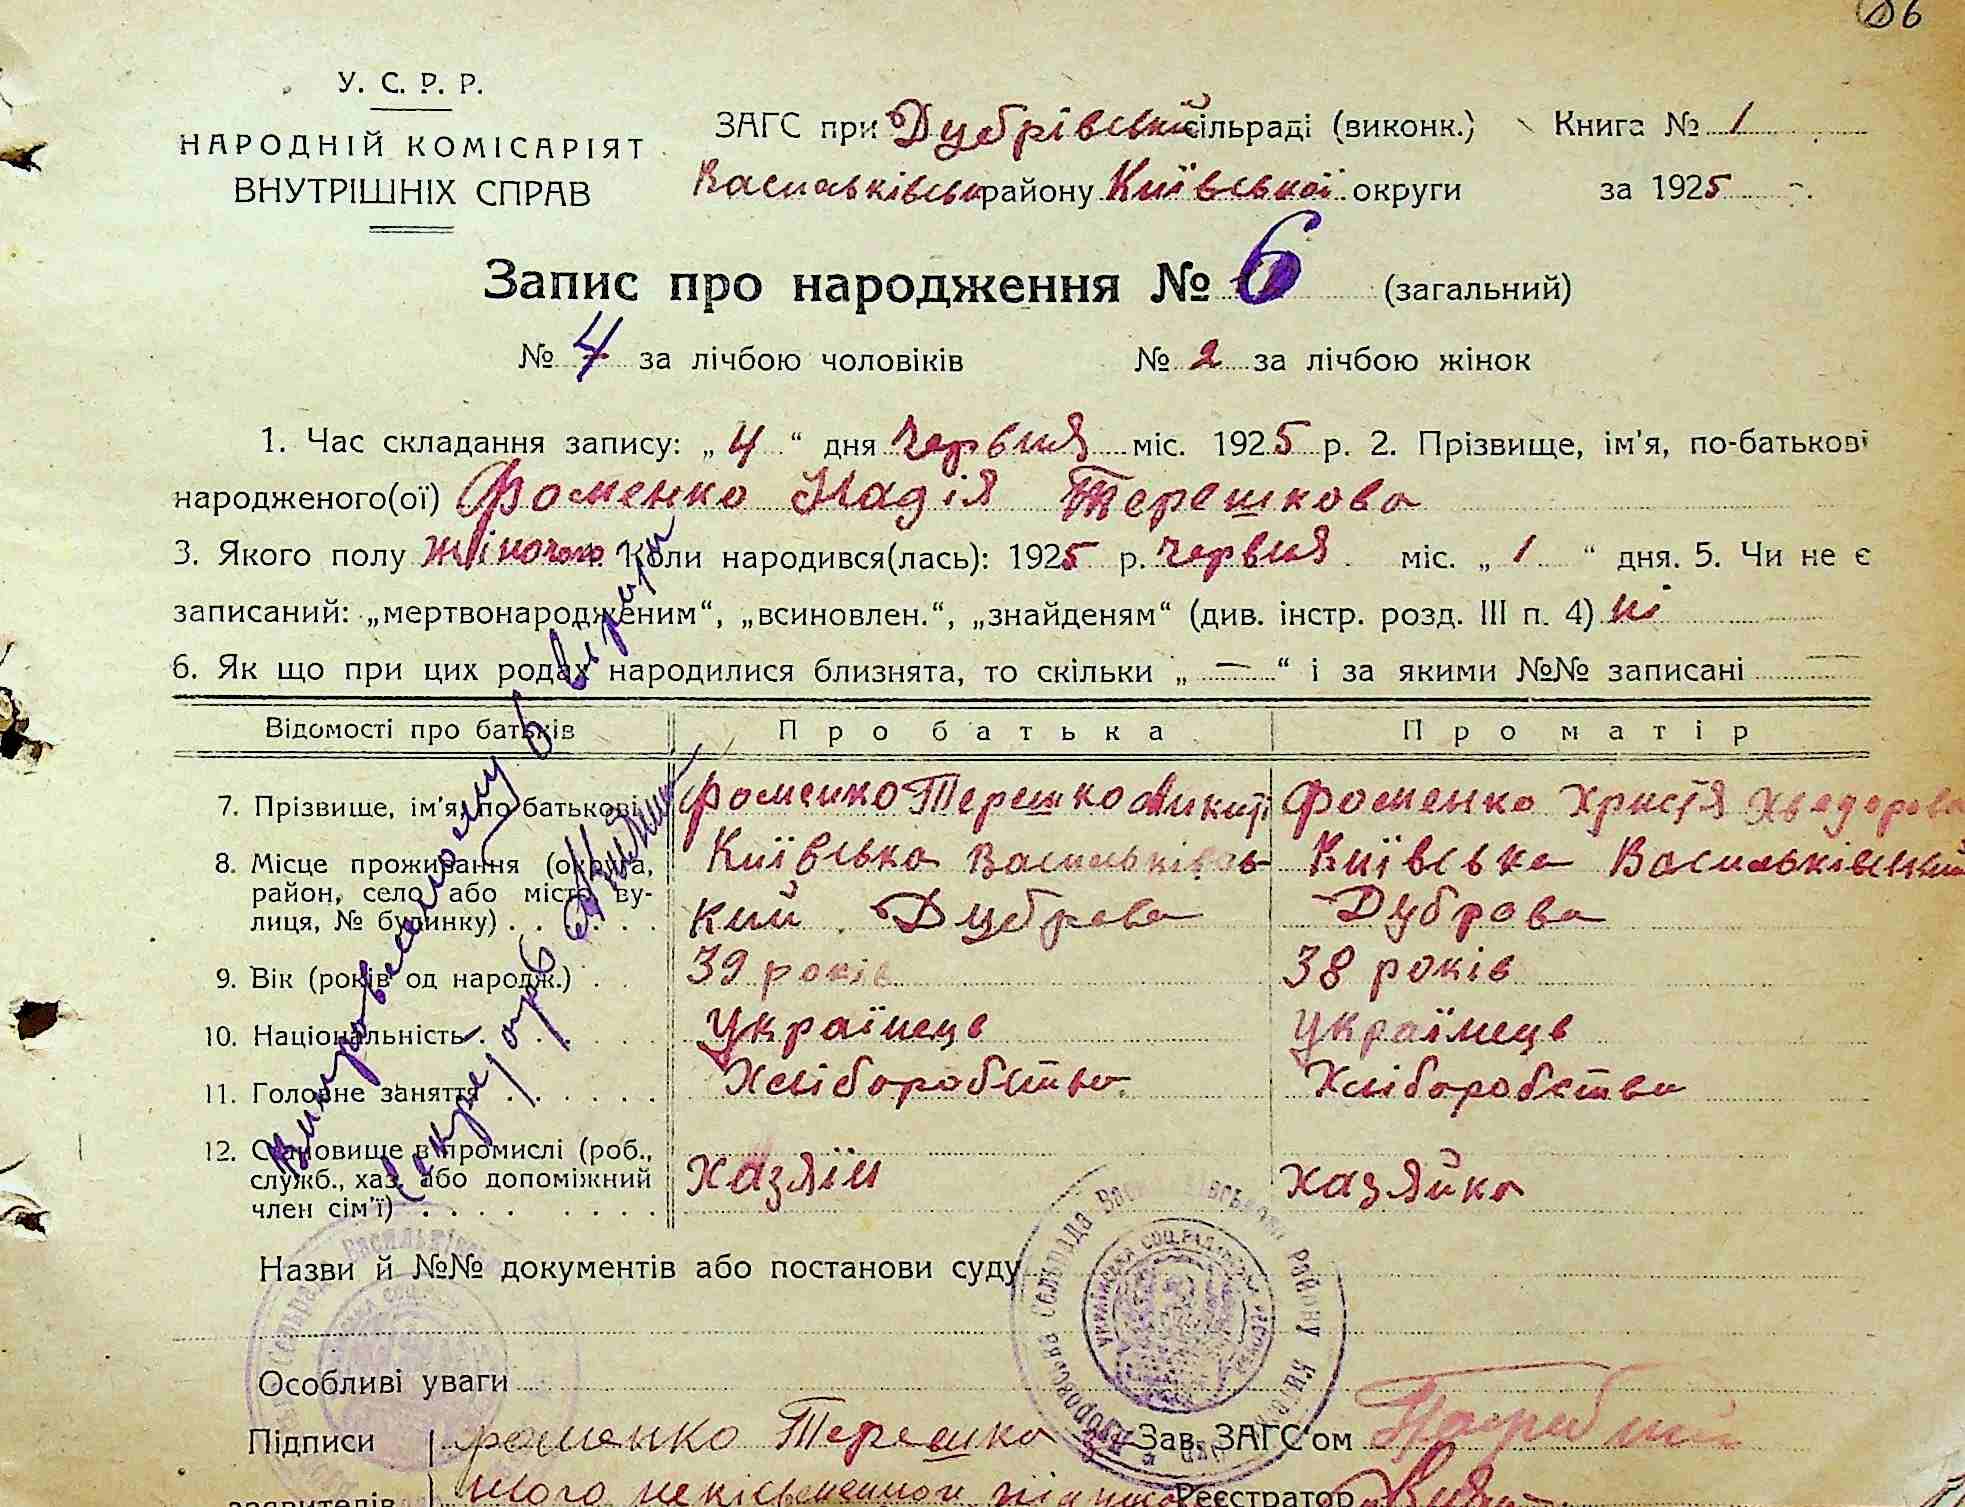 86
У. С. Р. Р.
НАРОДНІЙ КОМІСАРІЯТ
ВНУТРІШНІХ СПРАВ
ЗАГС при Дубрівській сільраді (виконк.) Книга № 1
Васильківськ району Київської округи за 1925
Запис про народження № 6 (загальний)
№ 4 за лічбою чоловіків № 2 за лічбою жінок
1. Час складання запису: „ 4 “ дня червня міс. 1925 р. 2. Прізвище, ім'я, по-батькові
народженого(ої) Фоменко Надія Терешкова
3. Якого полу жіночого Коли народився(лась): 1925 р. червня міс. „ 1 “ дня. 5. Чи не є
записаний: „мертвонародженим“, „всиновлен.“, „знайденям“ (див. інстр. розд. III п. 4) ні
6. Як що при цих родах народилися близнята, то скільки „ — “ і за якими №№ записані —
Відомості про батьків Про батька Про матір
7. Прізвище, ім'я, по батькові Фоменко Терешко Микит Фоменко Христя Хведорова
8. Місце прожирання (округа, Київська Васильківсь- Київська Васильківський
район, село або місто, ву-
лиця, № будинку) . . . . . кий Дуброва Дуброва
9. Вік (років од народж.) . . 39 років 38 років
10. Національність . . . . . Українець Українець
11. Головне заняття . . . . . . Хліборобство Хліборобство
12. Становище в промислі (роб.,
служб., хаз. або допоміжний Хазяїн Хазяйка
член сім'ї) . . . . . . . .
Назви й №№ документів або постанови суду
Особливі уваги
Підписи Фоменко Терешко Зав. ЗАГС'ом
заявителів Реєстратор